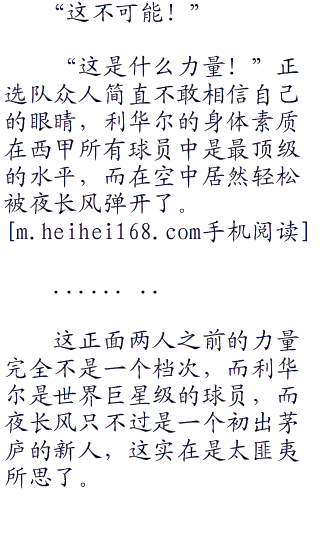 “这不可能！”
“这是什么力量！”正
选队众人简直不敢相信自己
的眼睛，利华尔的身体素质
在西甲所有球员中是最顶级
的水平，而在空中居然轻松
被夜长风弹开了。
[m.heihei168.com手机阅读]
...... ..
这正面两人之前的力量
完全不是一个档次，而利华
尔是世界巨星级的球员，而
夜长风只不过是一个初出茅
庐的新人，这实在是太匪夷
所思了。